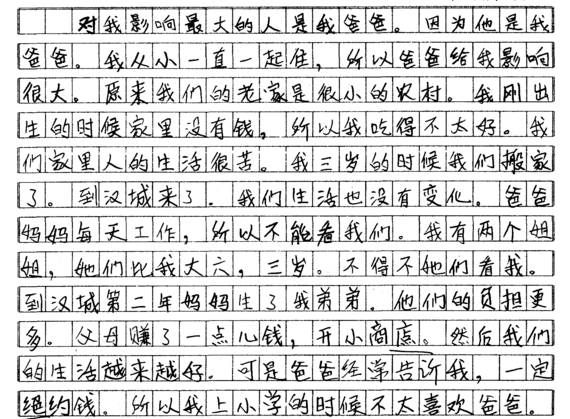 对我影响最大的人是我爸爸。因为他是我
爸爸。我从小一直一起住，所以爸爸给我影响
很大。原来我们的老家是很小的农村。我刚出
生的时候家里没有钱，所以我吃得不太好。我
们家里人的生活很苦。我三岁的时候我们搬家
了。到汉城来了．我们生活也没有变化。爸爸
妈妈每天工作，所以不能看我们。我有两个姐
姐，她们比我大六，三岁。不得不她们看我。
到汉城第二年妈妈生了我弟弟．他们的负担更
多。父母赚了一点儿钱，开小商店。然后我们
的生活越来越好．可是爸爸经常告诉我，一定
绝约钱．所以我上小学的时候不太喜欢爸爸．